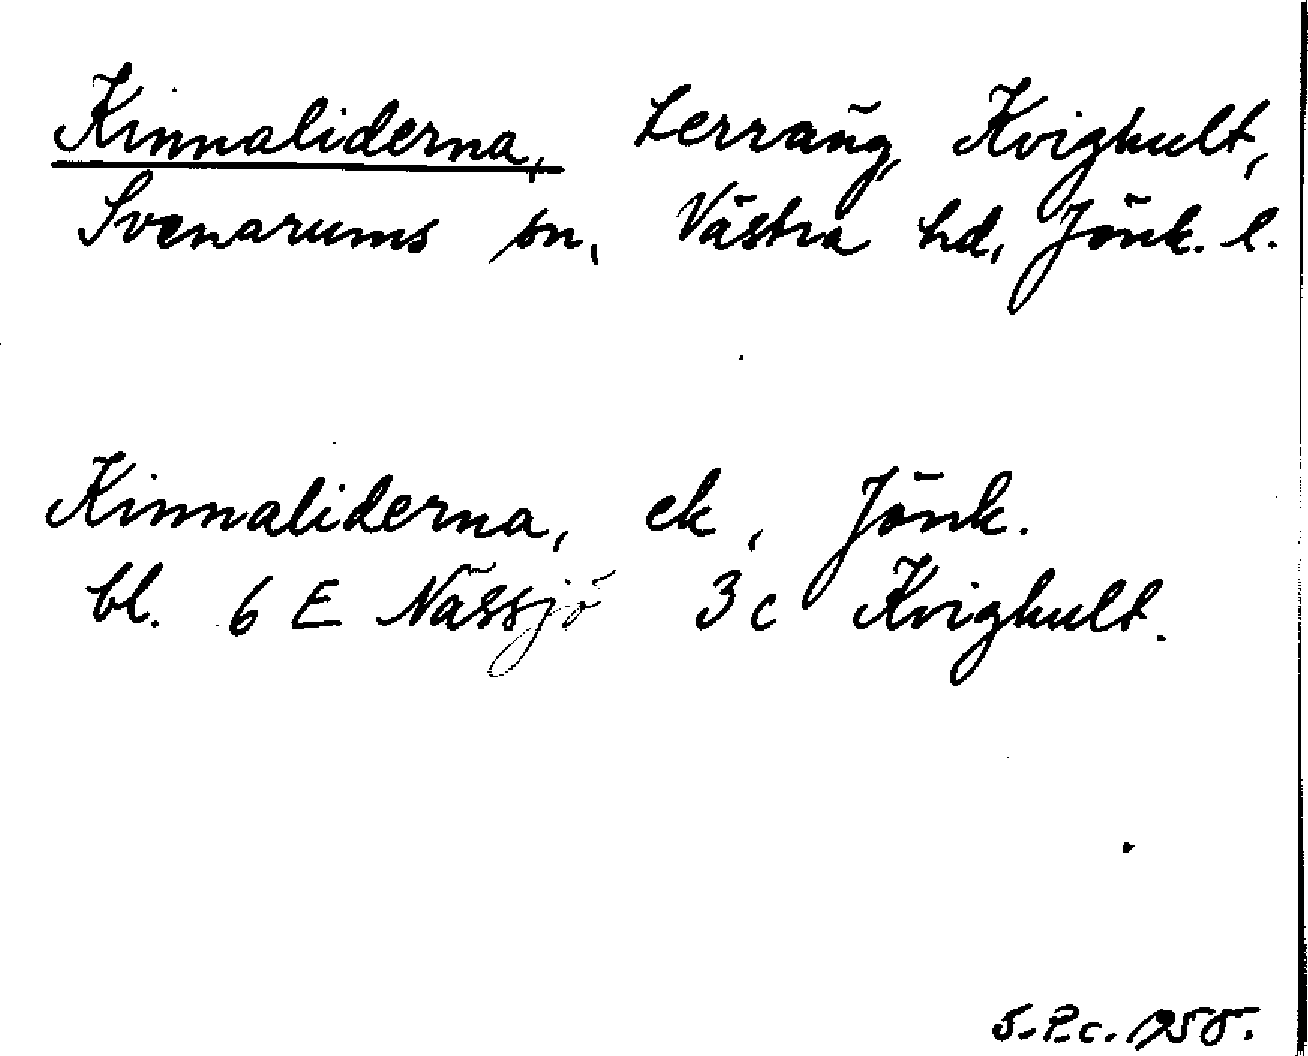 Kinnaliderna, terräng, Kvighult,
Svenarums sn, Västra hd, Jönk. l.
Kinnaliderna, ek, Jönk.
bl. 6 E Nässjö 3 c Kvighult.
S.P.c. 1955.